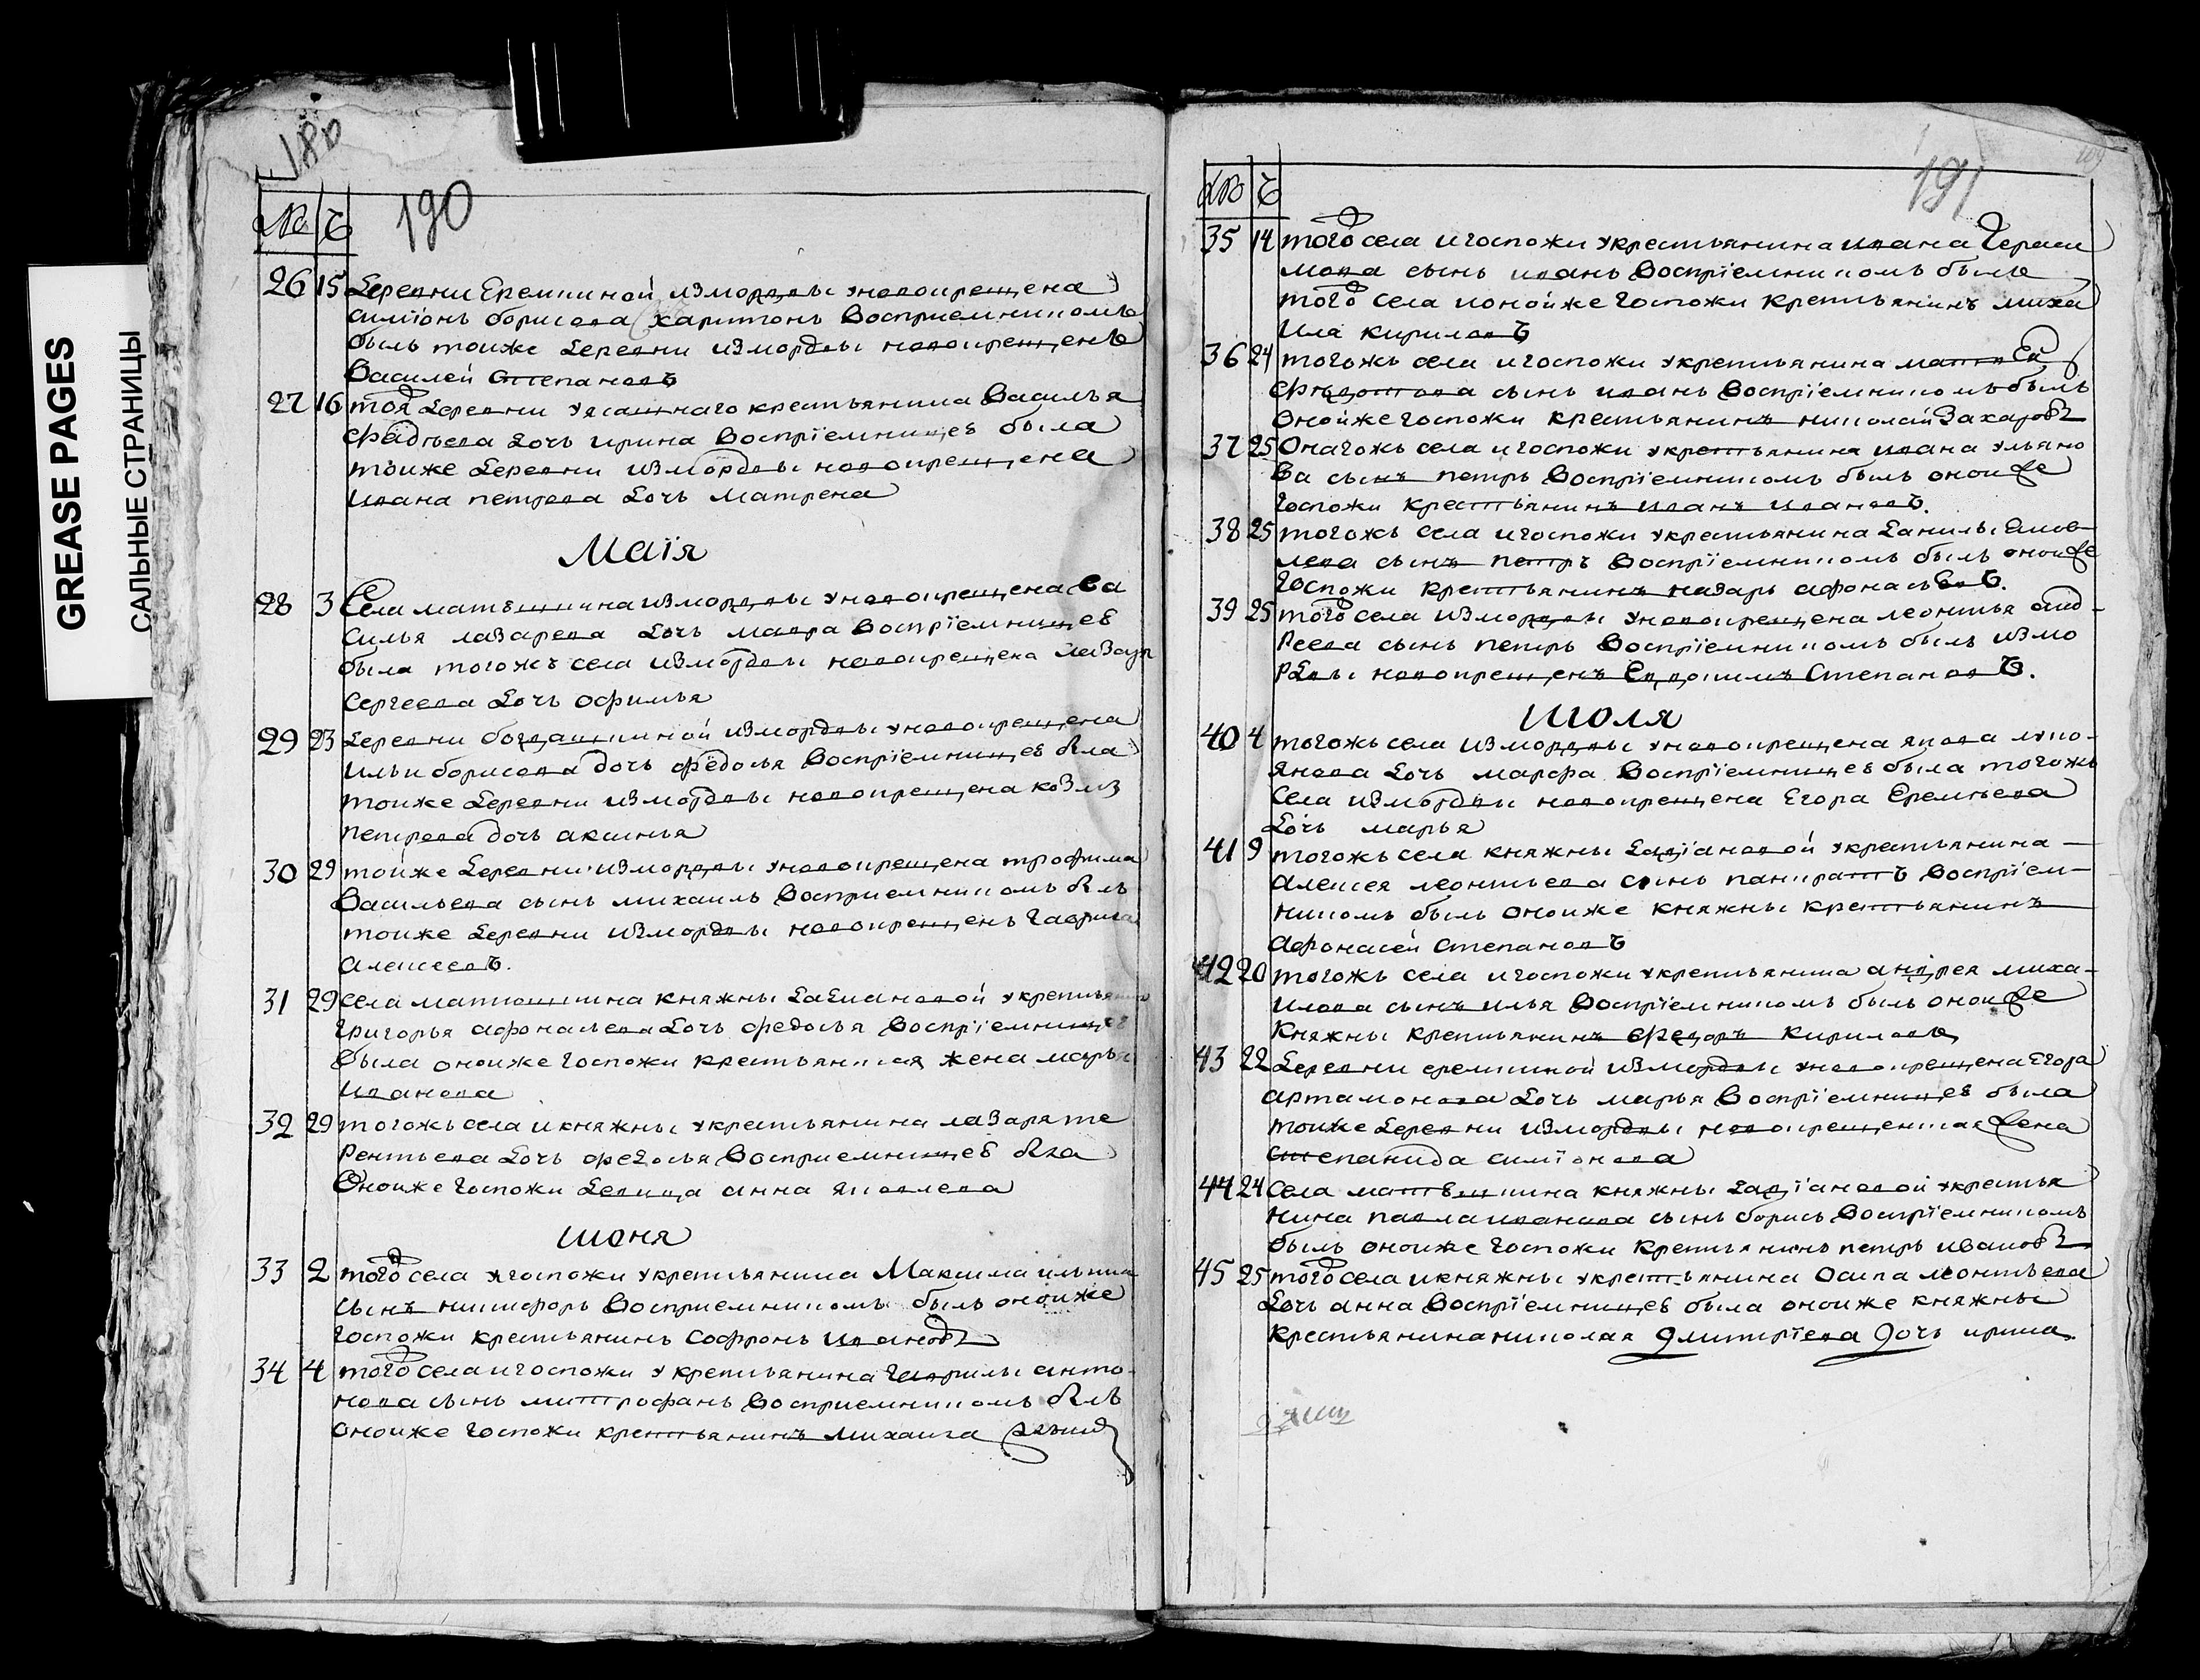 GREASE PAGES
САЛЬНЫЕ СТРАНИЦЫ
180
190
№ Ч
26 15 деревни Еремкиной измордвы уновокрещена
симiонъ борисова харитонъ восприемникомъ
былъ тоиже деревни измордвы новокрещенъ
Василей Степановъ
27 16 тоя деревни ясашнаго крестьянина Василья
фадѣева дочь ирина воспрiемницеѣ была
тоиже деревни измордвы новокрещена
ивана петрова дочь матрена
Маiя
28 3 Села матѣшкина измордвы уновокрещена ва
силья лазарева дочь мавра воспрiемницеѣ
была тогожъ села измордвы новокрещена
Сергеева дочь офимья
29 23 деревни богдашкиной измордвы уновокрещена
ильи борисова дочь федосья воспрiемницеѣ была
тоиже деревни измордвы новокрещена козмы
петрова дочь аксинья
30 29 тойже деревни измордвы уновокрещена трофима
Васильева сынъ михаилъ восприемникомъ былъ
тоиже деревни измордвы новокрещенъ гаврила
алексеевъ.
31 29 села матюшкина княжны дадиановой укрестьянина
григорья афонасьева дочь федосья воспрiемницеѣ
была оноиже госпожи крестьянская жена марья
иванова
32 29 тогожъ села икняжны укрестьянина лазаря те
рентьева дочь федосья восприемницеѣ была
Оноиже госпожи девица анна яковлева
июня
33 2 того села игоспожи укрестьянина Максима ильина
сынъ никифоръ восприемникомъ былъ оноиже
госпожи крестьянинъ софронъ ивановъ
34 4 того села игоспожи укрестьянина гаврилы анто
нова сынъ митрофанъ восприемникомъ былъ
оноиже госпожи крестьянинъ михаила
191
№ Ч
35 14 того села игоспожи укрестьянина ивана гераси
мова сынъ иванъ воспрiемникомъ былъ
того села ионойже госпожи крестьянинъ миха
ила кириловъ
36 24 тогожъ села игоспожи укрестьянина матвея
федотова сынъ иванъ воспрiемникомъ былъ
онойже госпожи крестьянинъ николай Захаровъ
37 25 Онагожъ села игоспожи укрестьянина ивана ульяно
ва сынъ петръ воспрiемникомъ былъ оноиже
госпожи крестьянинъ иванъ ивановъ.
38 25 тогожъ села игоспожи укрестьянина данилы яков-
лева сынъ петръ воспрiемникомъ былъ оноиже
госпожи крестьянинъ назаръ афонасьевъ.
39 25 того села измордвы уновокрещена леонтья анд-
реева сынъ петръ воспрiемникомъ былъ измо
рдвы новокрещенъ Евдокимъ Степановъ.
июля
40 4 тогожъ села измордвы уновокрещена якова луко-
янова дочь марфа воспрiемницеѣ была тогожъ
села измордвы новокрещена Егора Еремѣева
дочь марья
41 9 тогожъ села княжны дадiановой укрестьянина
алексея леонтьева сынъ панкратъ воспрiем-
никомъ былъ оноиже княжны крестьянинъ
афонасей степановъ
42 20 тогожъ села игоспожи укрестьянина андрея миха-
илова сынъ илья воспрiемникомъ былъ оноиже
княжны крестьянинъ федоръ кириловъ
43 22 деревни еремкиной измордвы уновокрещена Егора
артамонова дочь марья воспрiемницеѣ была
тоиже деревни измордвы новокрещенская жена
степанида симiонова
44 24 Села матѣшкина княжны дадiановой укрестья
нина павла иванова сынъ борисъ воспрiемникомъ
былъ оноиже госпожи крестьянинъ петръ ивановъ
45 25 того села икняжны укрестьянина Осипа леонтьева
дочь анна воспрiемницеѣ была оноиже княжны
крестьянина николая дмитрiева дочь ирина